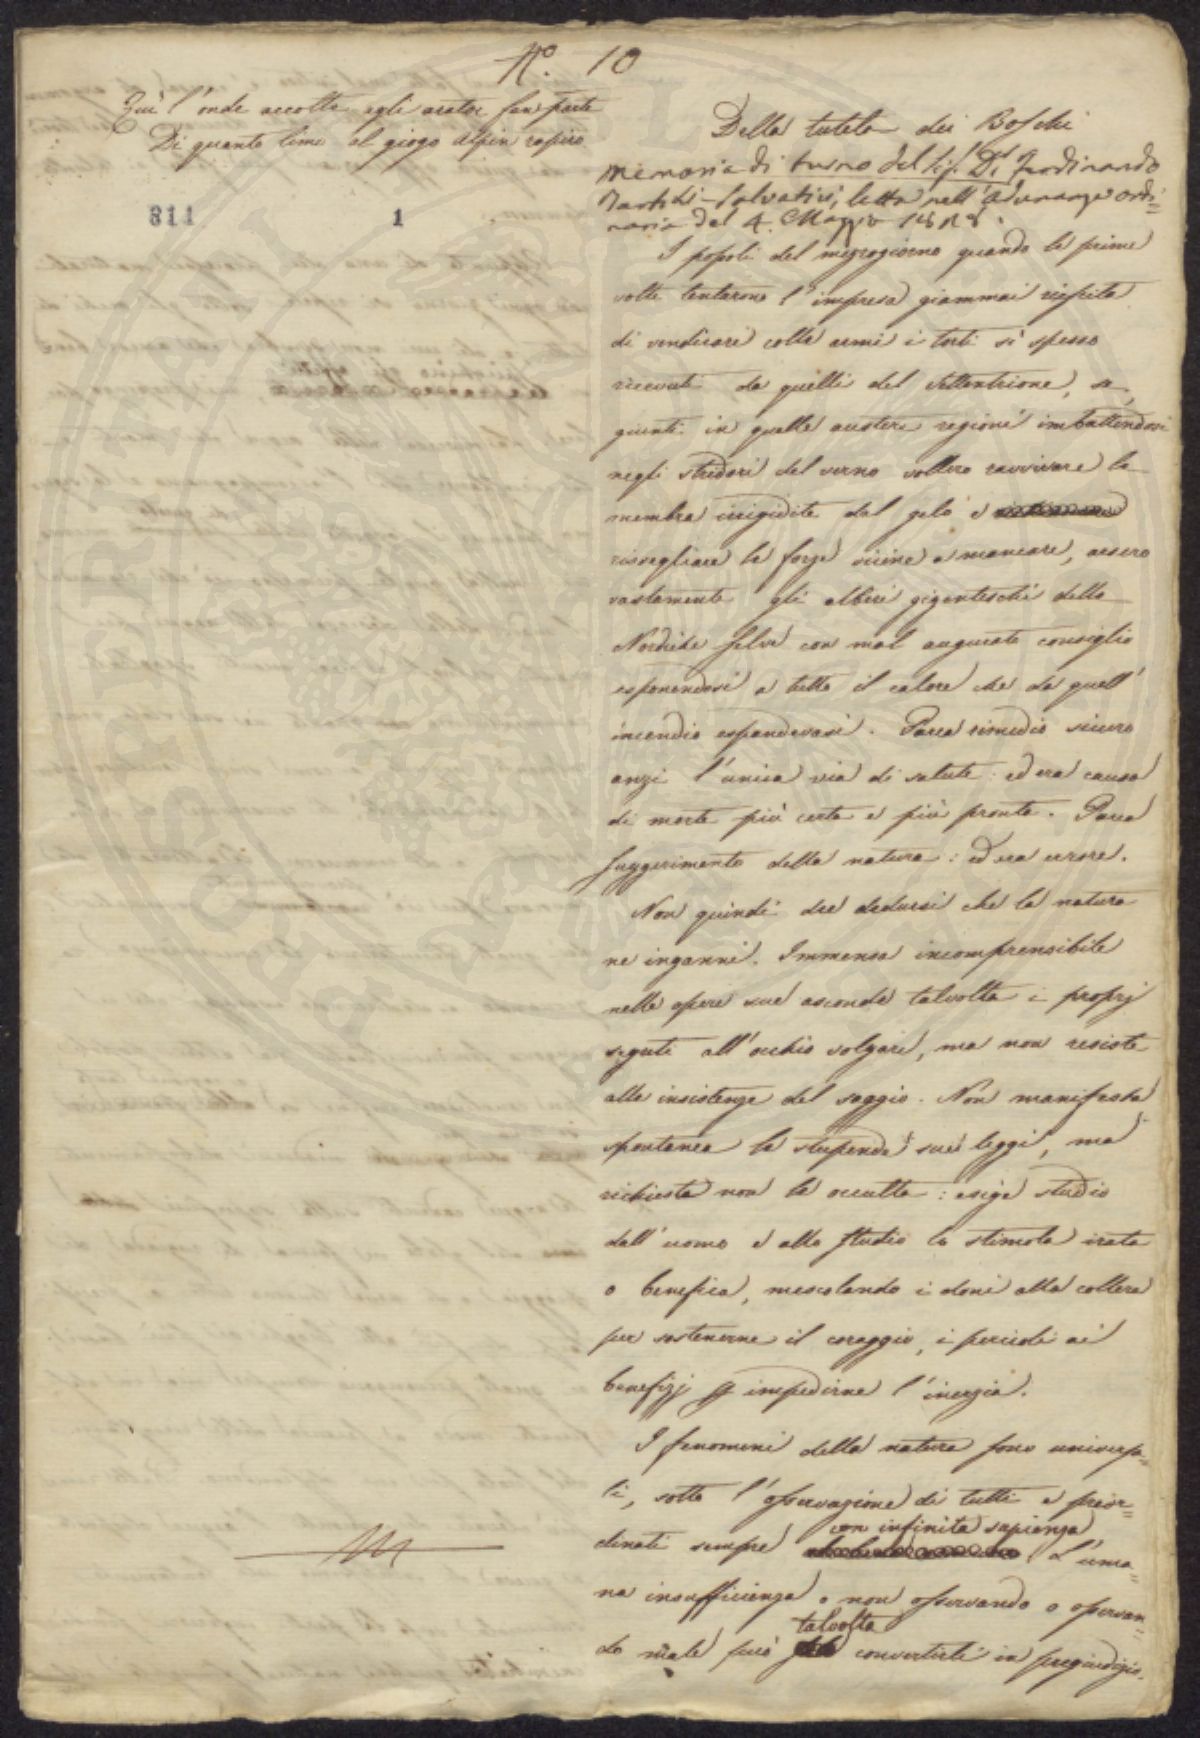 N.º 10
Qui l'onde accolte agli arator fan parte
Di quanto limo al giogo alpin rapiro
811 1
Della tutela dei Boschi
Memoria di turno del Sig. Dr. Ferdinando
Salvatici, letta nell'Adunanza ordi=
naria del 4. Maggio
I popoli del mezzogiorno quando le prime
volte tentarono l'impresa giammai riescita
di vendicare colle armi i torti sì spesso
ricevuti da quelli del settentrione, se,
giunti in quelle austere regioni imbattendosi
negli stridori del verno vollero ravvivare le
membra irrigidite dal gelo e
risvegliare le forze vicine a mancare, arsero
vastamente gli alberi giganteschi delle
Nordiche selve con mal augurato consiglio
esponendosi a tutto il calore che da quell'
incendio espandevasi. Parea rimedio sicuro
anzi l'unica via di salute: ed era causa
di morte più certa e più pronta. Parea
suggerimento della natura: ed era errore.
Non quindi dee dedursi che la natura
ne inganni. Immensa incomprensibile
nelle opere sue asconde talvolta i proprj
segreti all'occhio volgare, ma non resiste
alle insistenze del saggio. Non manifesta
spontanea le stupende sue leggi, ma
richiesta non le occulta: esige studio
dall'uomo e allo studio lo stimola irata
o benefica, mescolando i doni alla collera
per sostenerne il coraggio, i pericoli ai
benefizj per impedirne l'inerzia.
I fenomeni della natura sono universa=
li, sotto l'osservazione di tutti e preor=
dinati sempre con infinita sapienza. L'uma=
na insufficienza o non osservando o osservan=
do male può talvolta convertirli in pregiudizio.